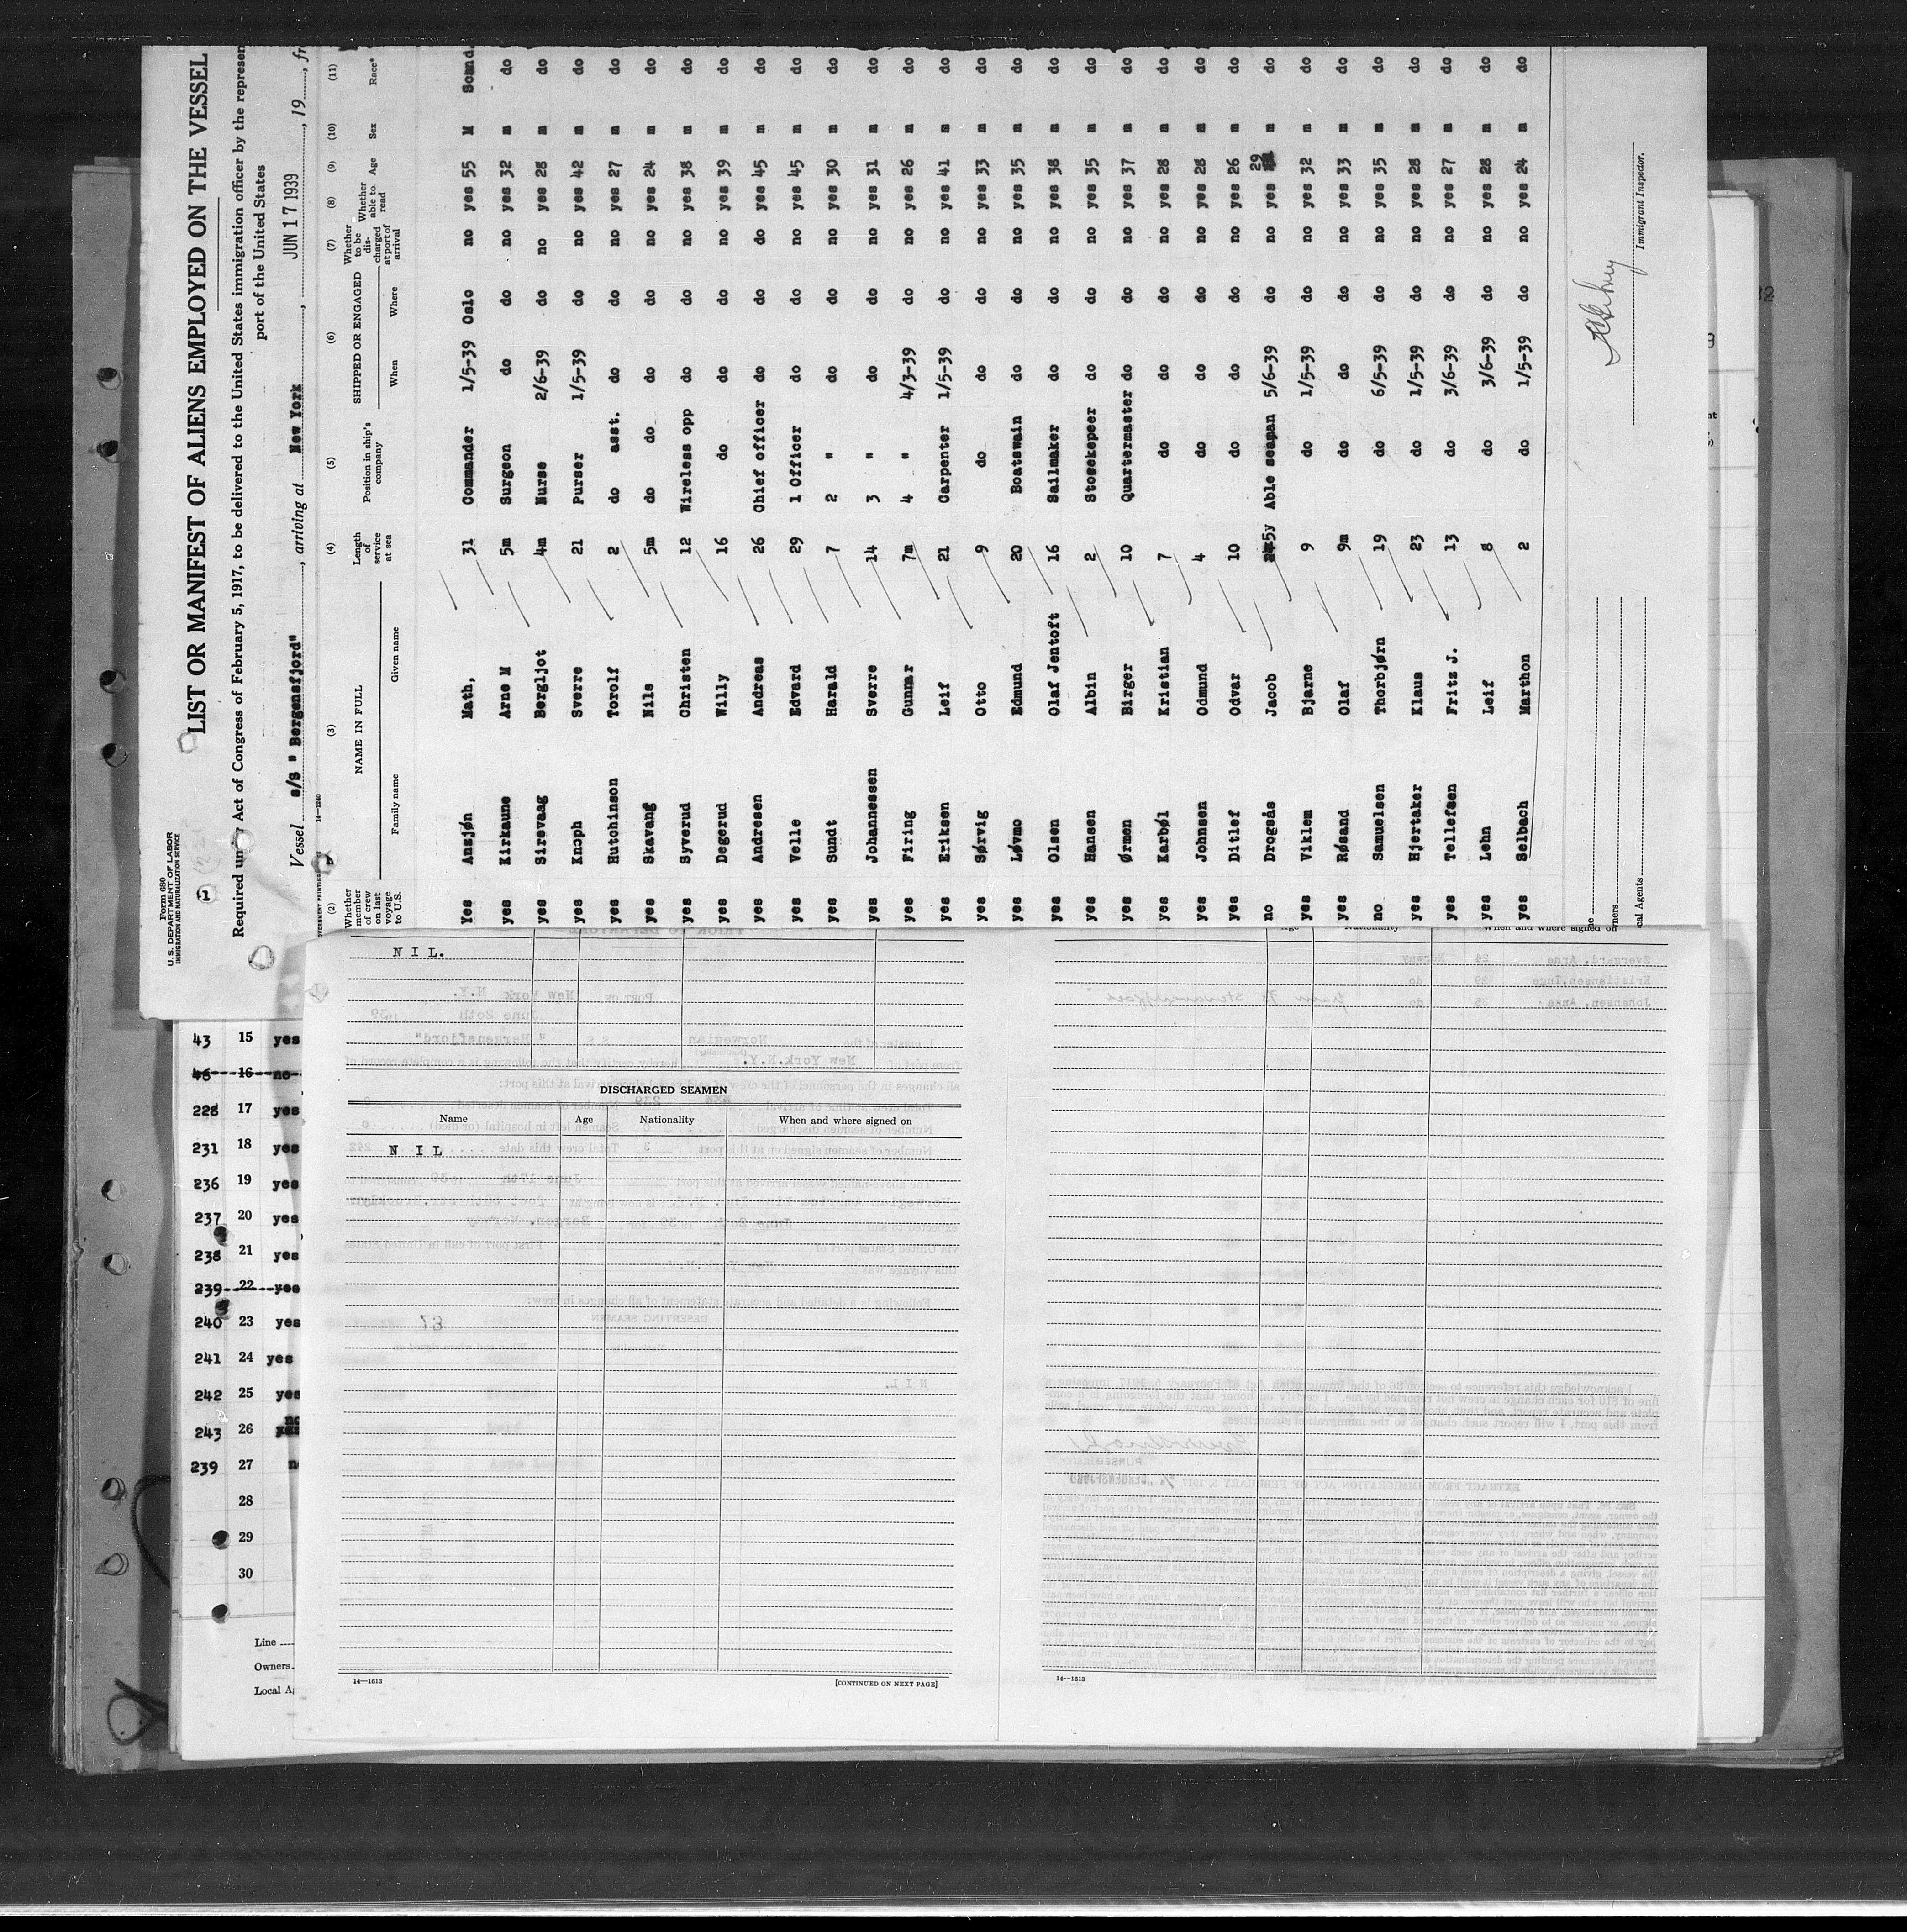 Form 680
U. S. DEPARTMENT OF LABOR
IMMIGRATION AND NATURALIZATION SERVICE
1
LIST OR MANIFEST OF ALIENS EMPLOYED ON THE VESSEL
Required un Act of Congress of February 5, 1917, to be delivered to the United States immigration officer by the represen
port of the United States
Vessel s/S " Bergensfjord", arriving at New York, JUN 17 1939, 19, fr
14—1240
(2) (3) (4) (5) (6) (7) (8) (9) (10) (11)
Whether member of crew on last voyage to U.S. NAME IN FULL Family name Given name Length of service at sea Position in ship's company SHIPPED OR ENGAGED When Where Whether to be discharged at port of arrival Whether able to read Age Sex Race*
Yes Ansjøn Math, 31 Commander 1/5-39 Oslo no yes 55 M Scand.
yes Kirkaune Arne M 5m Surgeon do do no yes 32 m do
yes Sirevaag Bergljot 4m Nurse 2/6-39 do no yes 28 m do
yes Knoph Sverre 21 Purser 1/5-39 do no yes 42 m do
yes Hutchinson Torolf 2 do asst. do do no yes 27 m do
yes Skavang Nils 5m do do do do no yes 24 m do
yes Syverud Christen 12 Wireless opp do do no yes 38 m do
yes Degerud Willy 16 do do do no yes 39 m do
yes Andresen Andreas 26 Chief officer do do do yes 45 m do
yes Velle Edvard 29 1 Officer do do no yes 45 m do
yes Sundt Harald 7 2 " do do no yes 30 m do
yes Johannessen Sverre 14 3 " do do no yes 31 m do
yes Firing Gunnar 7m 4 " 4/3-39 do no yes 26 m do
yes Eriksen Leif 21 Carpenter 1/5-39 do no yes 41 m do
yes Sørvig Otto 9 do do do no yes 33 m do
yes Løvmo Edmund 20 Boatswain do do no yes 35 m do
yes Olsen Olaf Jentoft 16 Sailmaker do do no yes 38 m do
yes Hansen Albin 2 Stosekepeer do do no yes 35 m do
yes Ørmen Birger 10 Quartermaster do do no yes 37 m do
yes Karbøl Kristian 7 do do do no yes 28 m do
yes Johnsen Odmund 4 do do do no yes 28 m do
yes Ditlef Odvar 10 do do do no yes 26 m do
no Drogsås Jacob 5y Able seaman 5/6-39 do no yes 29 m do
yes Viklem Bjarne 9 do 1/5-39 do no yes 32 m do
yes Røsand Olaf 9m do do do no yes 33 m do
no Samuelsen Thorbjørn 19 do 6/5-39 do no yes 35 m do
yes Hjertaker Klaus 23 do 1/5-39 do no yes 28 m do
yes Tellefsen Fritz J. 13 do 3/6-39 do no yes 27 m do
yes Lehn Leif 8 do 3/6-39 do no yes 28 m do
yes Selbach Marthon 2 do 1/5-39 do no yes 24 m do
Immigrant Inspector.
cal Agents
N I L.
DISCHARGED SEAMEN
Name Age Nationality When and where signed on
N I L
14—1613
[CONTINUED ON NEXT PAGE]
When and where signed on
14—1613
43 15 yes
46 16 no
228 17 yes
231 18 yes
236 19 yes
237 20 yes
238 21 yes
239 22 yes
240 23 yes
241 24 yes
242 25 yes
243 26 no
239 27 n
28
29
30
Line
Owners
Local A